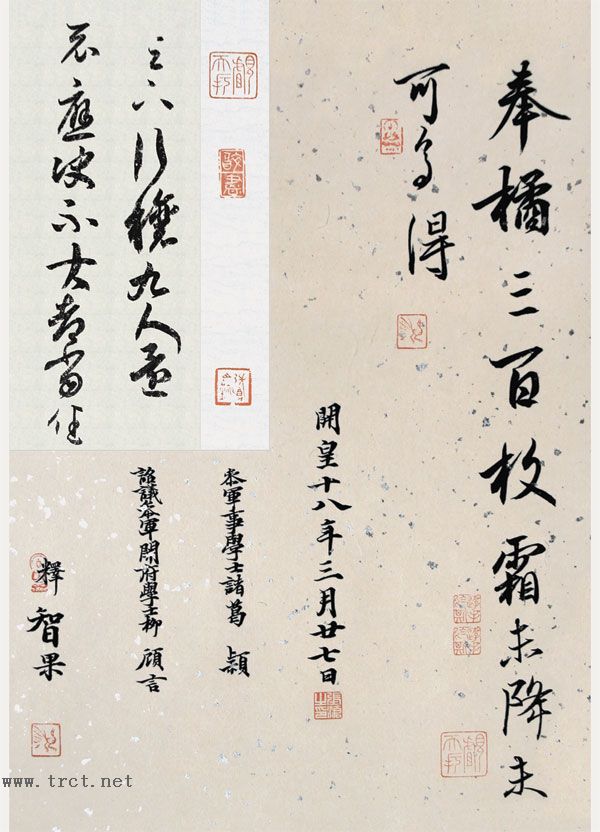 奉橘三百枚霜未降未
可多得
開皇十八年三月廿七日
參軍事學士諸葛穎
諮議參軍開府學士柳顧言
釋智果
足下行穰九人還
示應決不大都當佳
www.trct.net